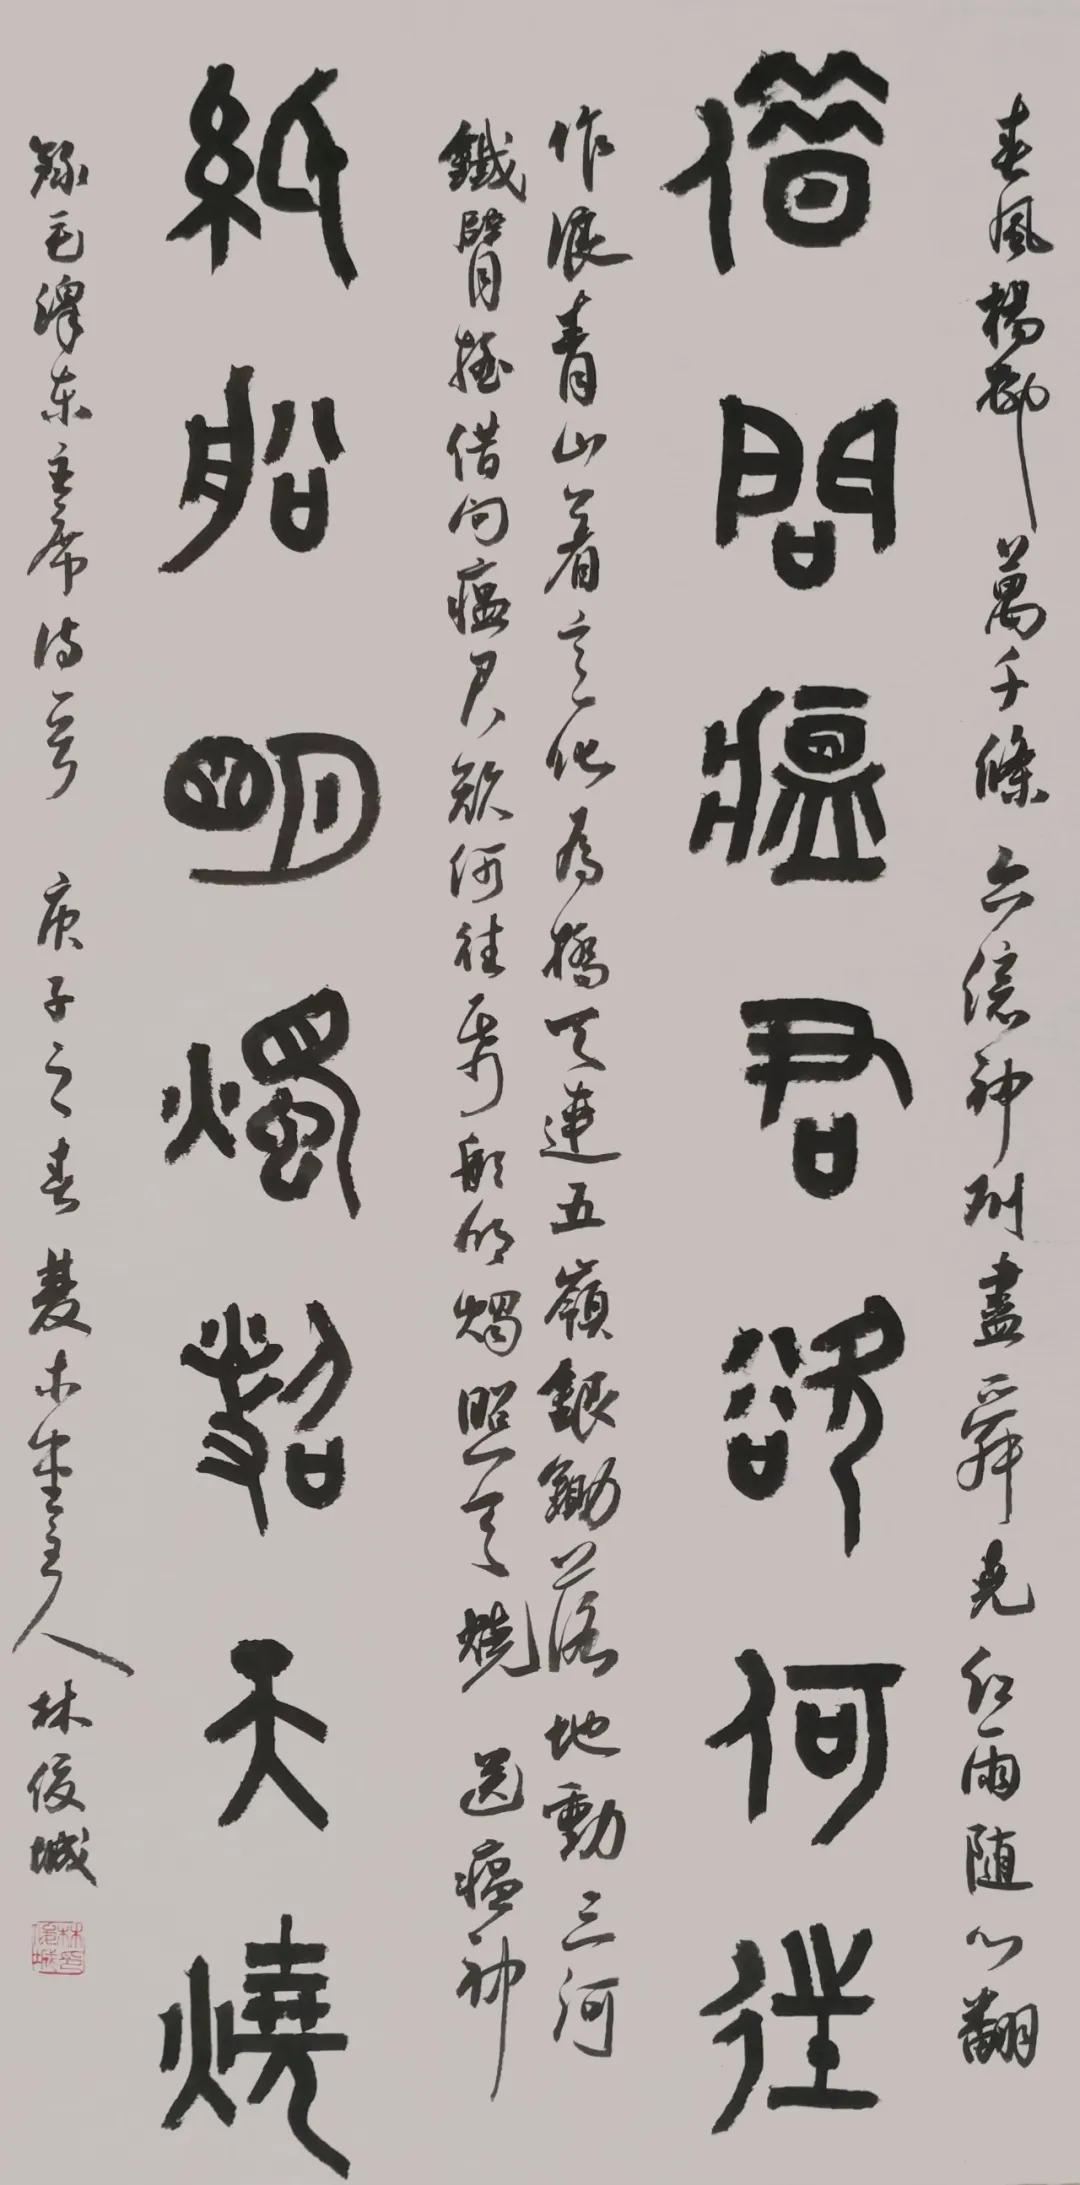 春風楊柳萬千條六億神州盡舜堯红雨随心翻
借問瘟君欲何往
作浪青山着意化為橋天連五嶺銀鋤落地動三河
鐵臂搖借问瘟君欲何往紙船明燭照天燒 送瘟神
紙船明燭照天燒
錄毛澤東主席詩一首 庚子之春 雙木堂主人 林俊城
林俊城印